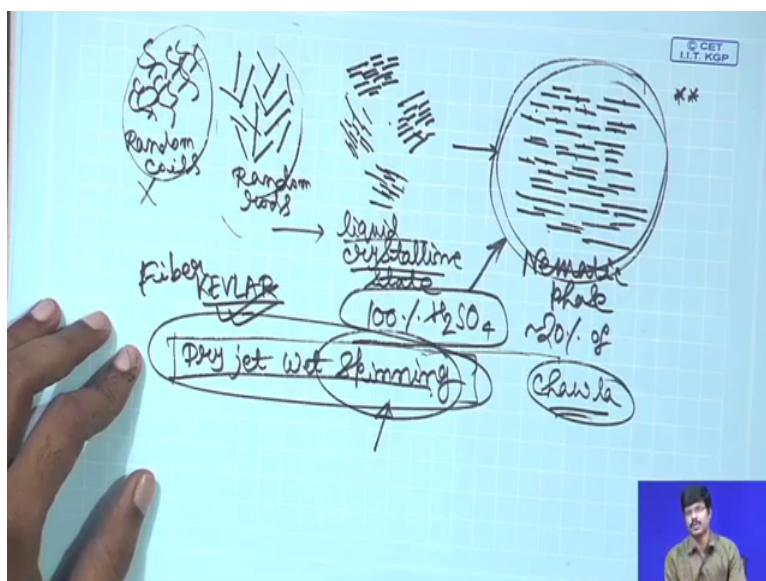 © CET
I.I.T. KGP
**
Random
coils
X
Random
rods
liquid
crystalline
state
Nematic
phase
Fiber
KEVLAR
100% H2SO4
~20% of
Dry jet wet Spinning
Chawla